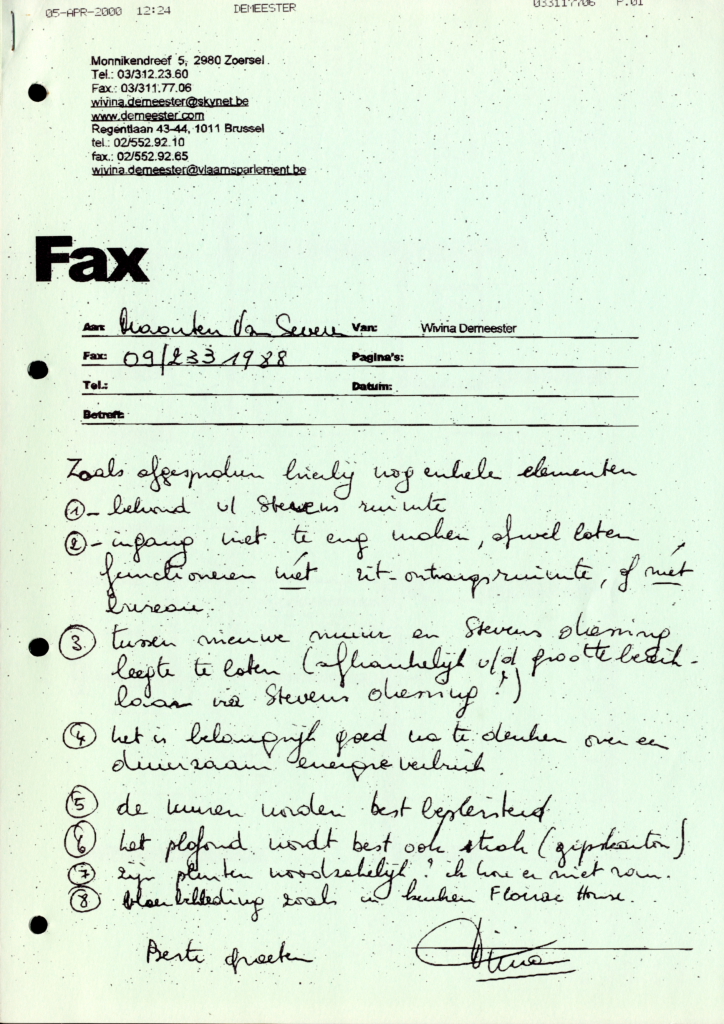 05-APR-2000 12:24 DEMEESTER 033117706 P.01
Monnikendreef 5, 2980 Zoersel
Tel.: 03/312.23.60
Fax.: 03/311.77.06
wivina.demeester@skynet.be
www.demeester.com
Regentlaan 43-44, 1011 Brussel
tel.: 02/552.92.10
fax.: 02/552.92.65
wivina.demeester@vlaamsparlement.be
Fax
Aan: Maarten Van Severen Van: Wivina Demeester
Fax: 09/2331988 Pagina's:
Tel.: Datum:
Betreft:
Zoals afgesproken hierbij nog enkele elementen
① - behoud v/ Stevens ruimte
② - ingang niet te eng maken, ofwel laten
functioneren mét zit-ontvangstruimte, of mét
bureau.
③ tussen nieuwe muur en Stevens dressing
leegte te laten (afhankelijk v/d grootte bereik-
baar via Stevens dressing!)
④ het is belangrijk goed na te denken over een
duurzaam energieverbruik.
⑤ de muren worden best bepleisterd
⑥ het plafond wordt best ook strak (gipskarton)
⑦ zijn plinten noodzakelijk? ik hou er niet van.
⑧ vloerbekleding zoals in keuken Floirac House.
Beste groeten